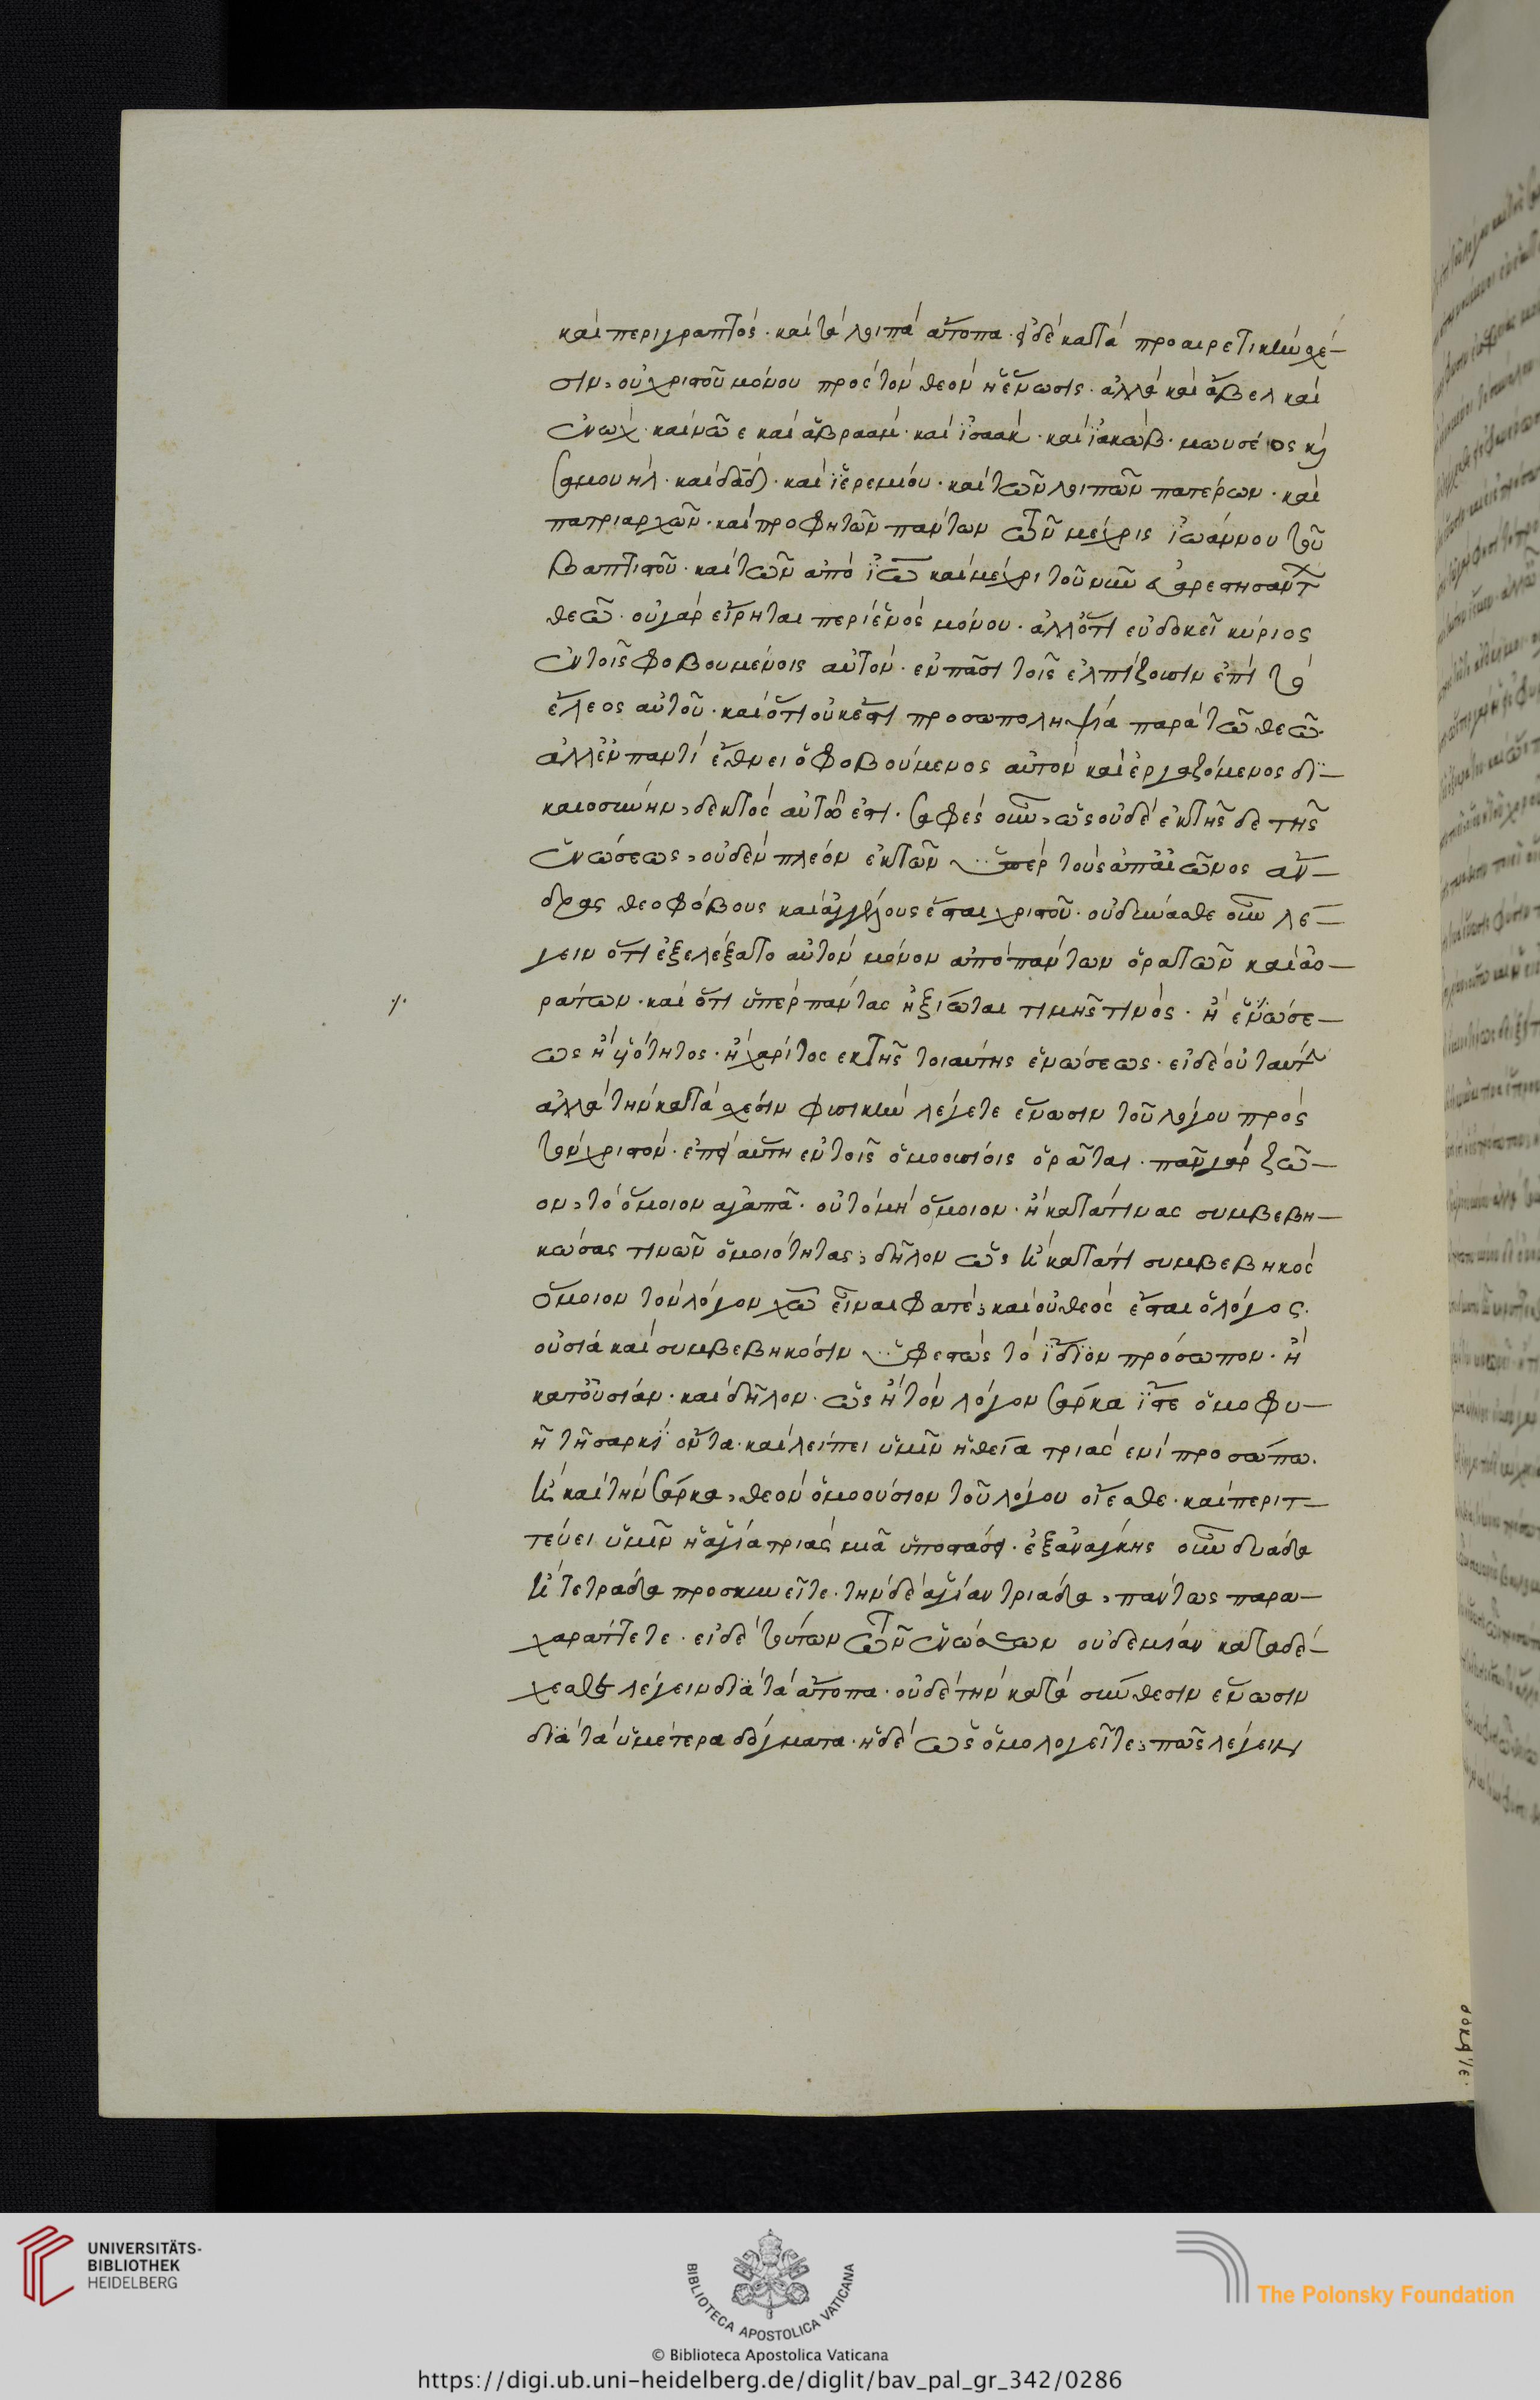 και περιγραπτός. και τὰ λοιπὰ ἄτοπα. εἰ δὲ κατὰ προαιρετικὴν σχέ-
σιν, οὐ χριστοῦ μόνου πρὸς τὸν θεὸν ἡ ἕνωσις. ἀλλὰ καὶ ἄβελ καὶ
ἐνώχ. καὶ νῶε καὶ ἀβραάμ. καὶ ἰσαάκ. καὶ ἰακώβ. μωυσέος κ
σαμουήλ. καὶ δαδ. καὶ ἰερεμίου. καὶ τῶν λοιπῶν πατέρων. καὶ
πατριαρχῶν. καὶ προφητῶν πάντων τῶν μέχρις ἰωάννου τοῦ
βαπτιστοῦ. καὶ τῶν ἀπὸ ἰω καὶ μέχρι τοῦ νῦν εὐαρεστησάντ
θεῶ. οὐ γὰρ εἴρηται περὶ ἑνὸς μόνου. ἀλλ' ὅτι εὐδοκεῖ κύριος
ἐν τοῖς φοβουμένοις αὐτόν. ἐν πᾶσι τοῖς ἐλπίζουσιν ἐπὶ τὸ
ἔλεος αὐτοῦ. καὶ ὅτι οὐκ ἔστι προσωποληψία παρὰ τῶ θεῶ.
ἀλλ' ἐν παντὶ ἔθνει ὁ φοβούμενος αὐτὸν καὶ ἐργαζόμενος δι-
καιοσύνην, δεκτὸς αὐτῶ ἐστι. σαφὲς οὖν, ὡς οὐδὲ ἐκ τῆσδε τῆς
ἑνώσεως, οὐδὲν πλέον ἐκ τῶν ὑπὲρ τοὺς ἀπ' αἰῶνος ἄν-
δρας θεοφόβους καὶ ἀγγέλους ἔσται χριστοῦ. οὐ δύνασθε οὖν λέ-
γειν ὅτι ἐξελέξατο αὐτὸν μόνον ἀπὸ πάντων ὁρατῶν καὶ ἀο-
ράτων. καὶ ὅτι ὑπὲρ πάντας ἠξίωται τιμῆς τινὸς. ἢ ἑνώσε-
ως ἢ ἰσότητος. ἢ χάριτος ἐκ τῆς τοιαύτης ἑνώσεως. εἰ δὲ οὐ ταύτ
ἀλλὰ τὴν κατὰ σχέσιν φυσικὴν λέγετε ἕνωσιν τοῦ λόγου πρὸς
τὸν χριστόν. ἐπεὶ αὕτη ἐν τοῖς ὁμοουσίοις ὁρᾶται. πᾶν γὰρ ζῶ-
ον, τὸ ὅμοιον ἀγαπᾶ. οὐ τὸ μὴ ὅμοιον. ἢ κατά τινας συμβεβη-
κώσας τινῶν ὁμοιότητας, δῆλον ὡς ἢ κατά τι συμβεβηκὸς
ὅμοιον τὸν λόγον χω εἶναι φατέ, καὶ οὐ θεὸς ἔσται ὁ λόγος.
οὐσία καὶ συμβεβηκόσιν ὑφεστὼς τὸ ἴδιον πρόσωπον. ἢ
κατ' οὐσίαν. καὶ δῆλον. ὡς ἢ τὸν λόγον σάρκα ἴστε ὁμοφυ-
ῆ τῆ σαρκὶ ὄντα. καὶ λείπει ὑμῖν ἡ θεία τριὰς ἑνὶ προσώπω.
ἢ καὶ τὴν σάρκα, θεὸν ὁμοούσιον τοῦ λόγου οἴεσθε. καὶ περιτ-
τεύει ὑμῖν ἡ ἁγία τριὰς μιᾶ ὑποστάσει. ἐξ ἀνάγκης οὖν δυάδα
ἢ τετράδα προσκυνεῖτε. τὴν δὲ ἁγίαν τριάδα, πάντως παρα-
χαράττετε. εἰ δὲ τούτων τῶν ἑνώσεων οὐδεμίαν καταδέ-
χεσθε λέγειν διὰ τὰ ἄτοπα. οὐδὲ τὴν κατὰ σύνθεσιν ἕνωσιν
διὰ τὰ ὑμέτερα δόγματα. ἡ δὲ ὡς ὁμολογεῖτε, πῶς λέγειν
UNIVERSITÄTS-
BIBLIOTHEK
HEIDELBERG
BIBLIOTECA APOSTOLICA VATICANA
The Polonsky Foundation
© Biblioteca Apostolica Vaticana
https://digi.ub.uni-heidelberg.de/diglit/bav_pal_gr_342/0286